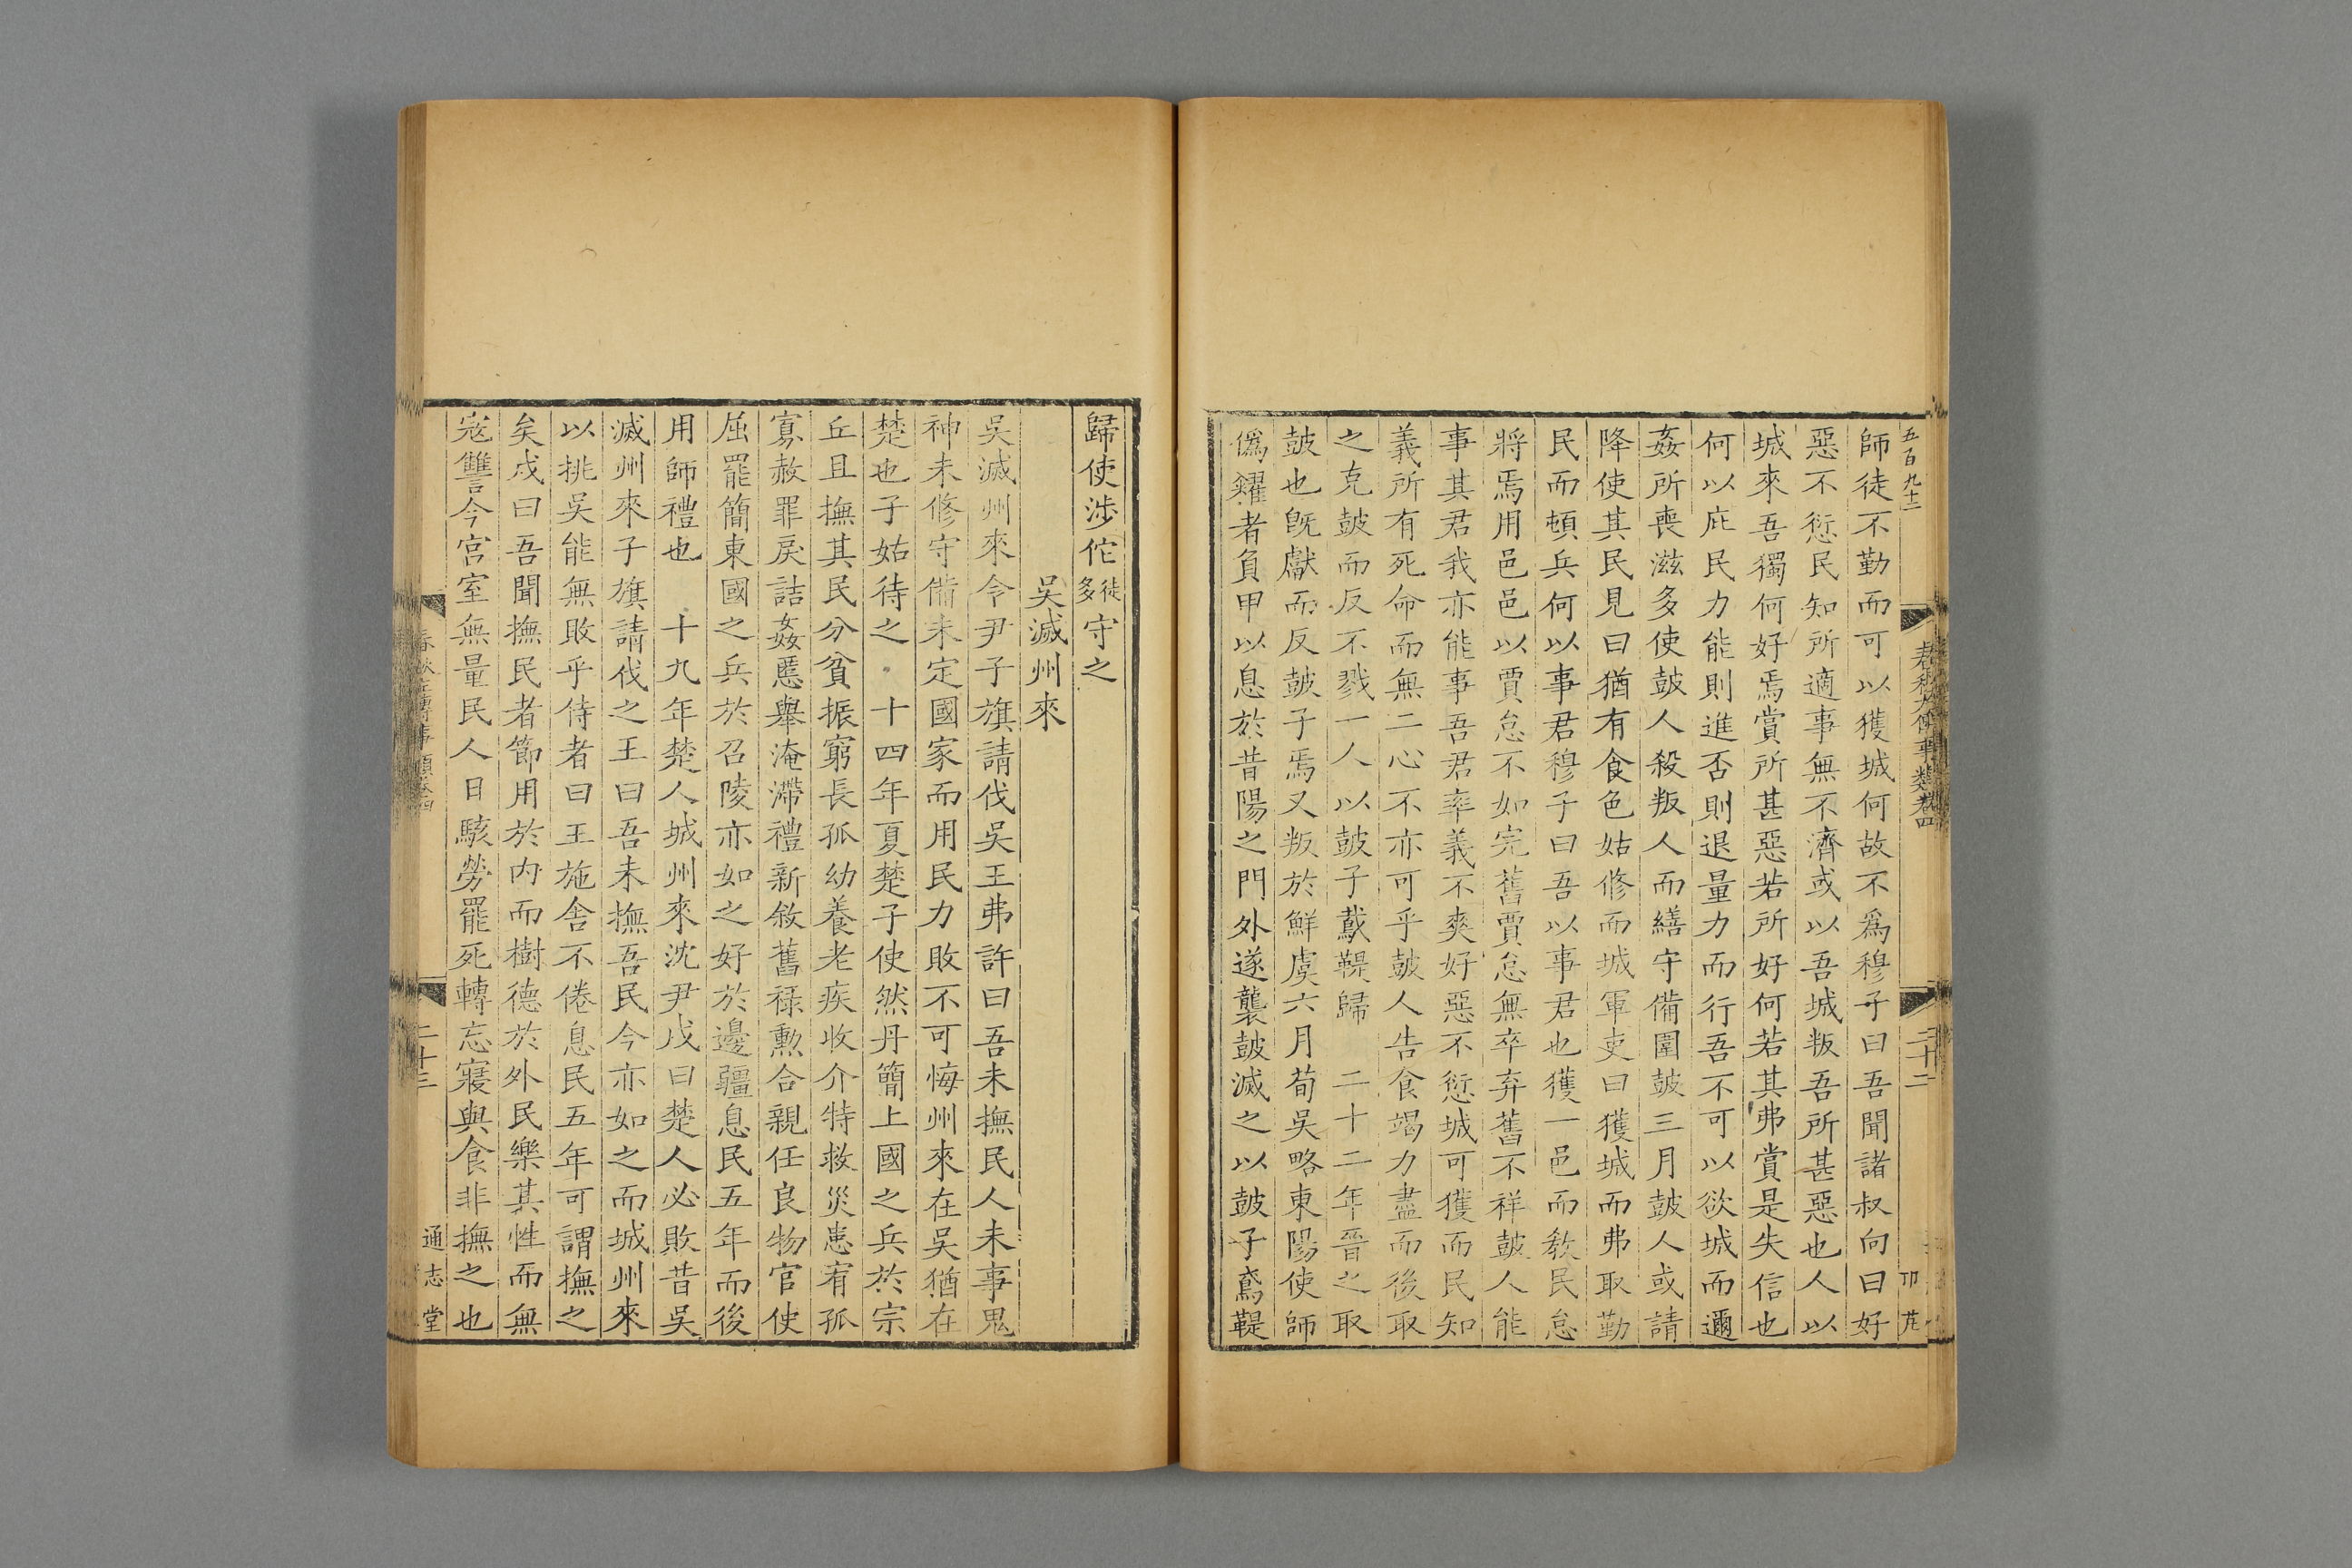 五百九十二
師徒不勤而可以獲城何故不爲穆子曰吾聞諸叔向曰好
惡不愆民知所適事無不濟或以吾城叛吾所甚惡也人以
城來吾獨何好焉賞所甚惡若所好何若其弗賞是失信也
何以庇民力能則進否則退量力而行吾不可以欲城而邇
姦所喪滋多使鼓人殺叛人而繕守備圍鼓三月鼓人或請
降使其民見曰猶有食色姑修而城軍吏曰獲城而弗取勤
民而頓兵何以事君穆子曰吾以事君也獲一邑而教民怠
將焉用邑邑以賈怠不如完舊賈怠無卒弃舊不祥鼓人能
事其君我亦能事吾君率義不爽好惡不愆城可獲而民知
義所有死命而無二心不亦可乎鼓人告食竭力盡而後取
之克鼓而反不戮一人以鼓子䳒鞮歸 二十二年晉之取
鼓也旣獻而反鼓子焉又叛於鮮虞六月荀吳略東陽使師
僞糴者負甲以息於昔陽之門外遂襲鼓滅之以鼓子鳶鞮
歸使涉佗徒多守之
吳滅州來
吳滅州來令尹子旗請伐吳王弗許曰吾未撫民人未事鬼
神未修守備未定國家而用民力敗不可悔州來在吳猶在
楚也子姑待之 十四年夏楚子使然丹簡上國之兵於宗
丘且撫其民分貧振窮長孤幼養老疾收介特救災患宥孤
寡赦罪戾詰姦慝舉淹滯禮新敘舊祿勳合親任良物官使
屈罷簡東國之兵於召陵亦如之好於邊疆息民五年而後
用師禮也 十九年楚人城州來沈尹戌曰楚人必敗昔吳
滅州來子旗請伐之王曰吾未撫吾民今亦如之而城州來
以挑吳能無敗乎侍者曰王施舍不倦息民五年可謂撫之
矣戌曰吾聞撫民者節用於內而樹德於外民樂其性而無
寇讐今宮室無量民人日駭勞罷死轉忘寢與食非撫之也
春秋左傳事類卷四
二十三
通志堂